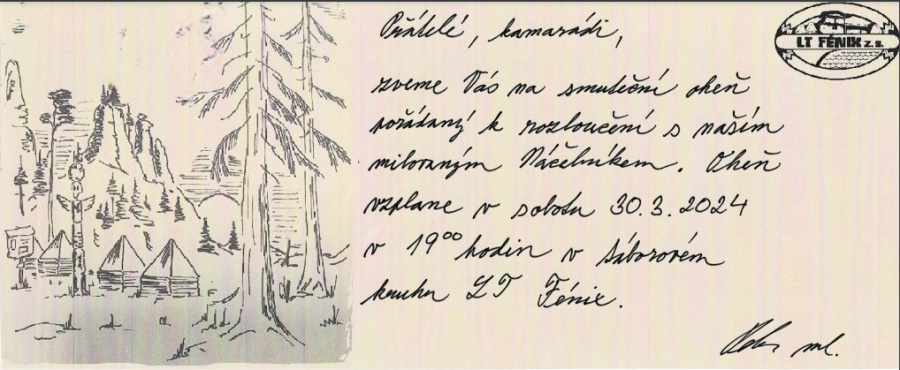 Přátelé, kamarádi,
zveme Vás na smuteční oheň
pořádaný k rozloučení s naším
milovaným Náčelníkem. Oheň
vzplane v sobotu 30.3.2024
v 19⁰⁰ hodin v táborovém
kruhu LT Fénix.
ml.
LT FÉNIX z.s.